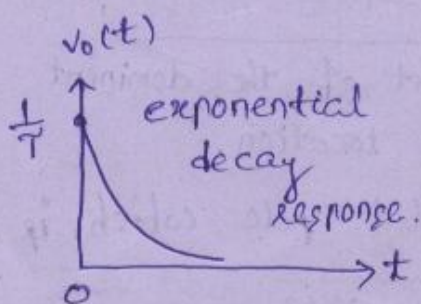 v₀(t)
1/T
exponential
decay
response.
t
0